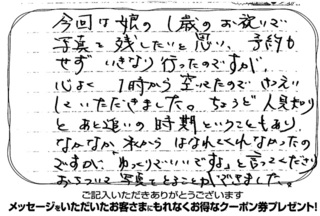 今回は娘の1歳のお祝いで
写真を残したいと思い、予約も
せずいきなり行ったのですが、
心よく1時から空いてたので
していただきました。ちょうど人見知り
とあと追いの時期ということもあり、
なかなか私からはなれてくれなかったの
ですが、「ゆっくりでいいですよ」と言ってくださり
おちついて写真をとることができました。
ご記入いただきありがとうございます
メッセージをいただいたお客さまにもれなくお得なクーポン券プレゼント!